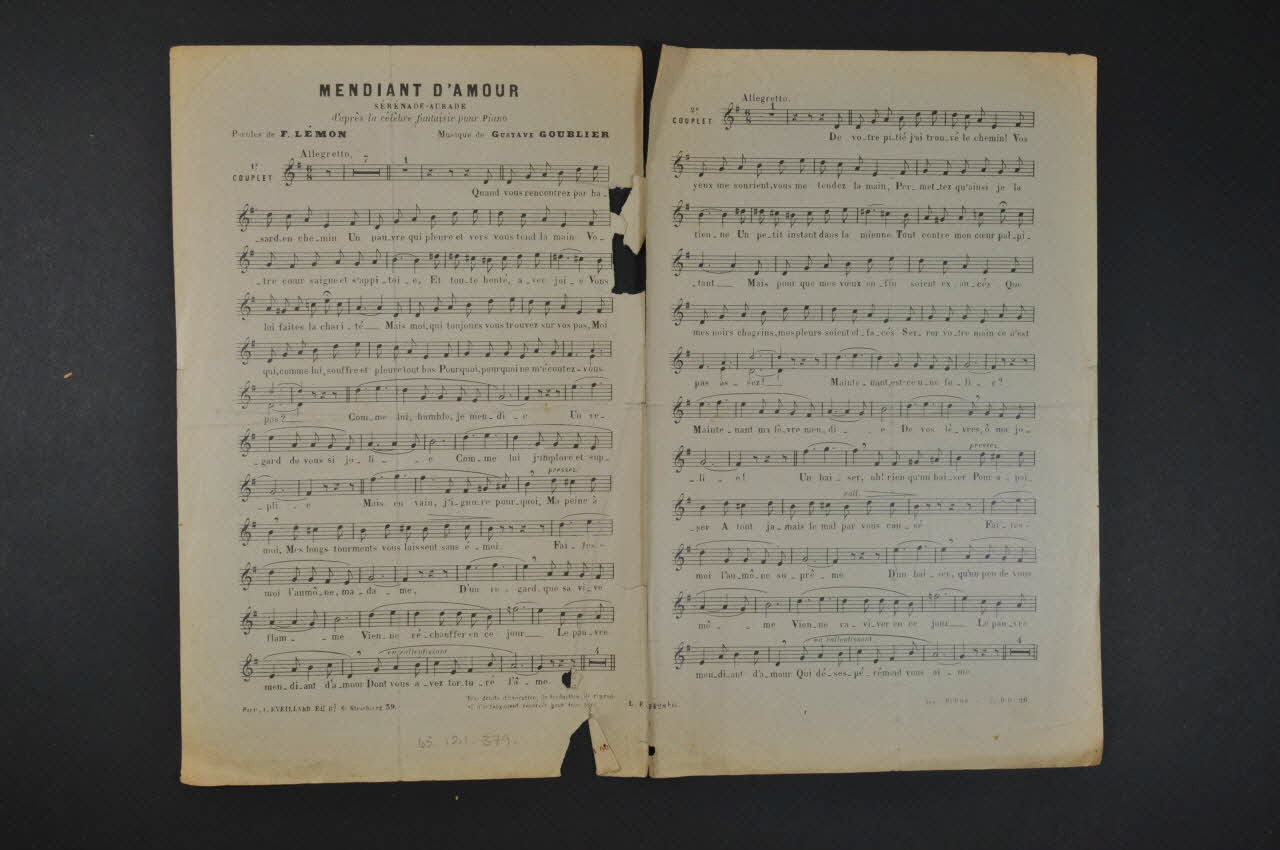 MENDIANT D'AMOUR
SÉRÉNADE-AUBADE
d'après la célèbre fantaisie pour Piano
Paroles de F. LÉMON
Musique de GUSTAVE GOUBLIER
1er COUPLET
Allegretto.
7
1
Quand vous rencontrez par ha-
-sard, en che-min Un pau-vre qui pleure et vers vous tend la main Vo-
-tre cœur saigne et s'appi-toi-e, Et tou-te bonté, a-vec joi-e Vous
lui faites la chari-té Mais moi, qui toujours vous trouvez sur vos pas, Moi
qui, comme lui, souffre et pleure tout bas Pourquoi, pourquoi ne m'écoutez-vous
pas? Com-me lui, humble, je men-di-e Un re-
-gard de vous si jo-li-e Com-me lui j'implore et sup-
pressez
-pli-e Mais en vain, j'i-gnore pour-quoi, Ma peine à
moi, Mes longs tourments vous laissent sans é-moi. Fai-tes-
moi l'aumô-ne, ma-da-me, D'un re-gard, que sa vi-ve
flam-me Vien-ne ré-chauffer en ce jour Le pau-vre
en rallentissant
4
men-di-ant d'a-mour Dont vous a-vez tor-tu-ré l'â-me.
Paris, L. EVEILLARD Edr Bd de Strasbourg 39.
Tous droits d'exécution, de traduction, de reprod-
et d'arrangement réservés pour tous pays
65.121.379.
2e COUPLET
Allegretto.
1
De vo-tre pi-tié j'ai trou-vé le chemin! Vos
yeux me sourient, vous me tendez la main, Per-met-tez qu'ainsi je la
tien-ne Un pe-tit instant dans la mienne. Tout contre mon cœur pal-pi-
-tant Mais pour que mes vœux en-fin soient ex-au-cés Que
mes noirs chagrins, mes pleurs soient ef-fa-cés Ser-rer vo-tre main ce n'est
pas as-sez! Mainte-nant, est-ce u-ne fo-li-e?
Mainte-nant ma lè-vre men-di-e De vos lè-vres, ô ma jo-
pressez
-li-e! Un bai-ser, oh! rien qu'un bai-ser Pour a-pai-
rall.
-ser A tout ja-mais le mal par vous cau-sé Fai-tes-
moi l'au-mô-ne su-prê-me D'un bai-ser, qu'un peu de vous
mê-me Vien-ne ra-vi-ver en ce jour Le pau-vre
en rallentissant
4
men-di-ant d'a-mour Qui dé-ses-pé-rément vous ai-me.